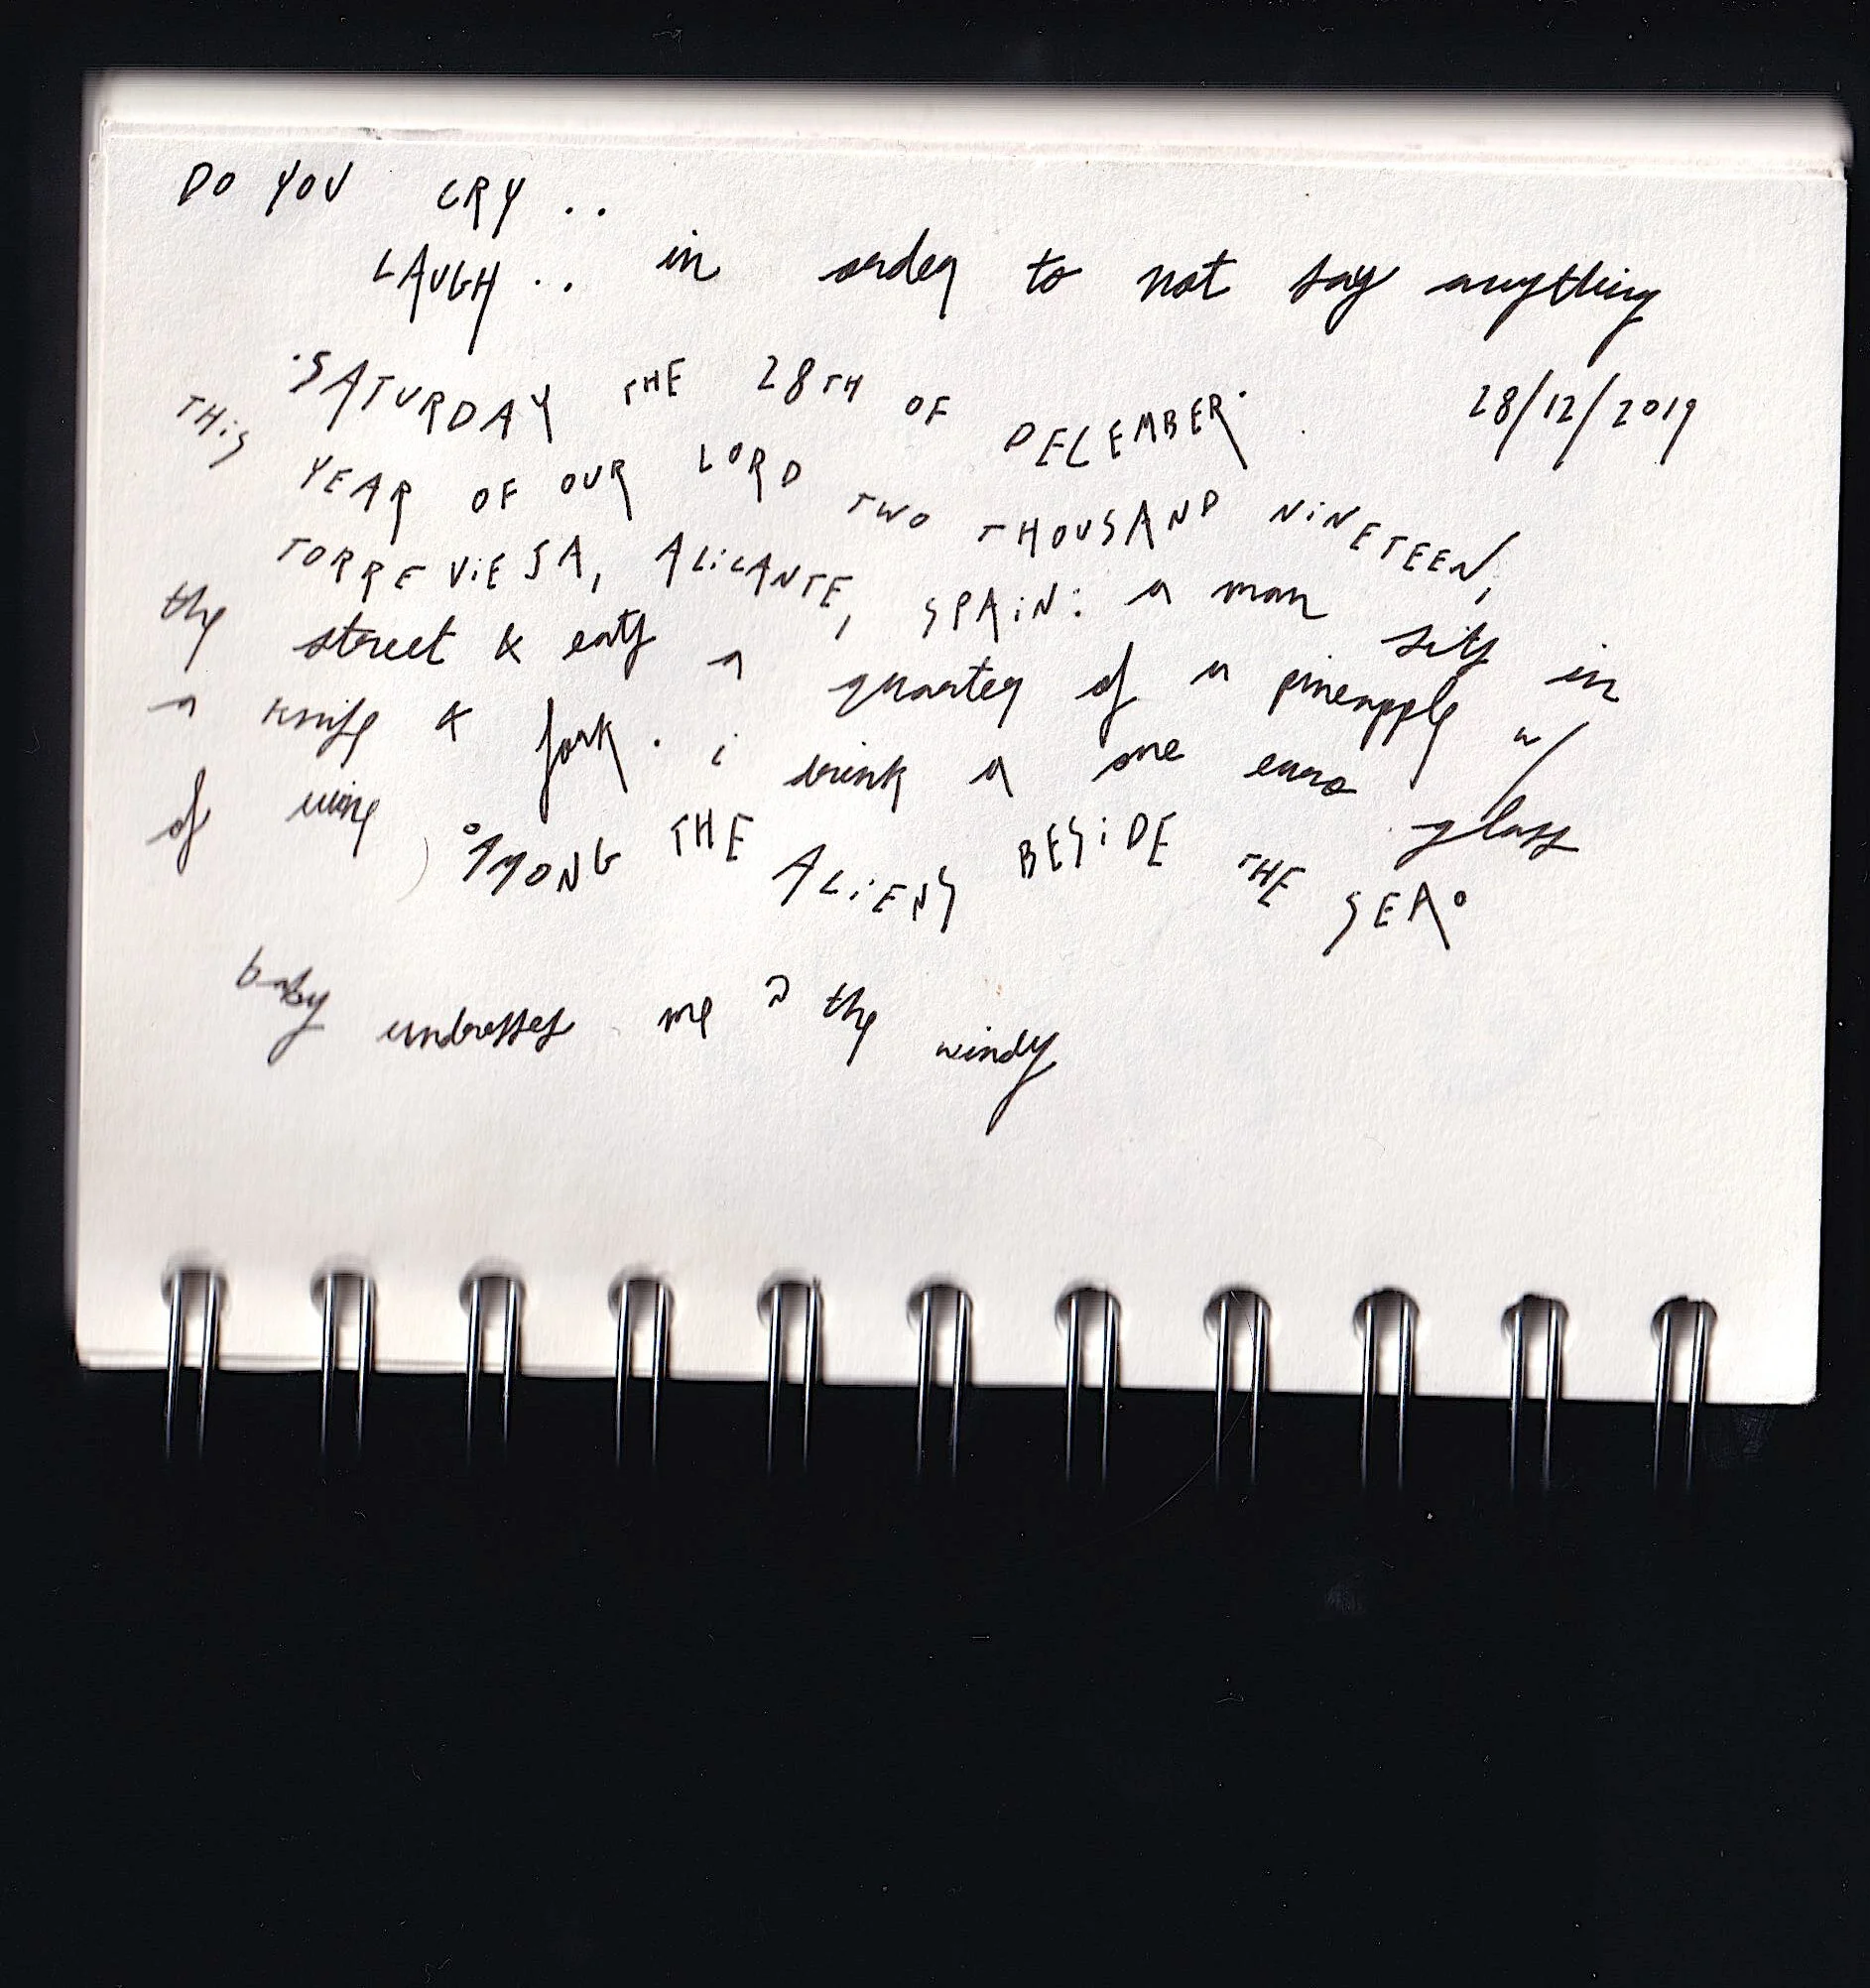 DO YOU CRY ..
LAUGH .. in order to not say anything
·SATURDAY THE 28TH OF DECEMBER· 28/12/2019
THIS YEAR OF OUR LORD TWO THOUSAND NiNETEEN,
TORREViESA, ALiCANTE, SPAiN: a man sits in
the street & eats a quarter of a pineapple w/
a knife & fork. i drink a one euro glass
of wine °AMONG THE ALiENS BESiDE THE SEA°
baby undresses me the windy